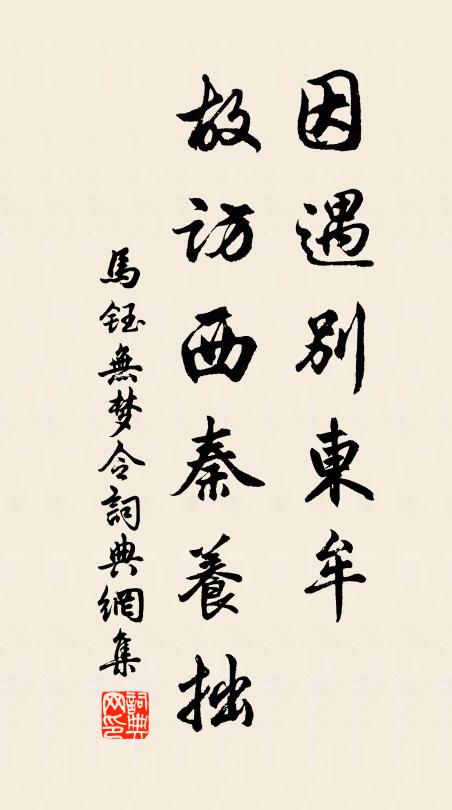 因遇別東牟
故訪西秦養拙
馬鈺無梦令詞典網集
詞典網印